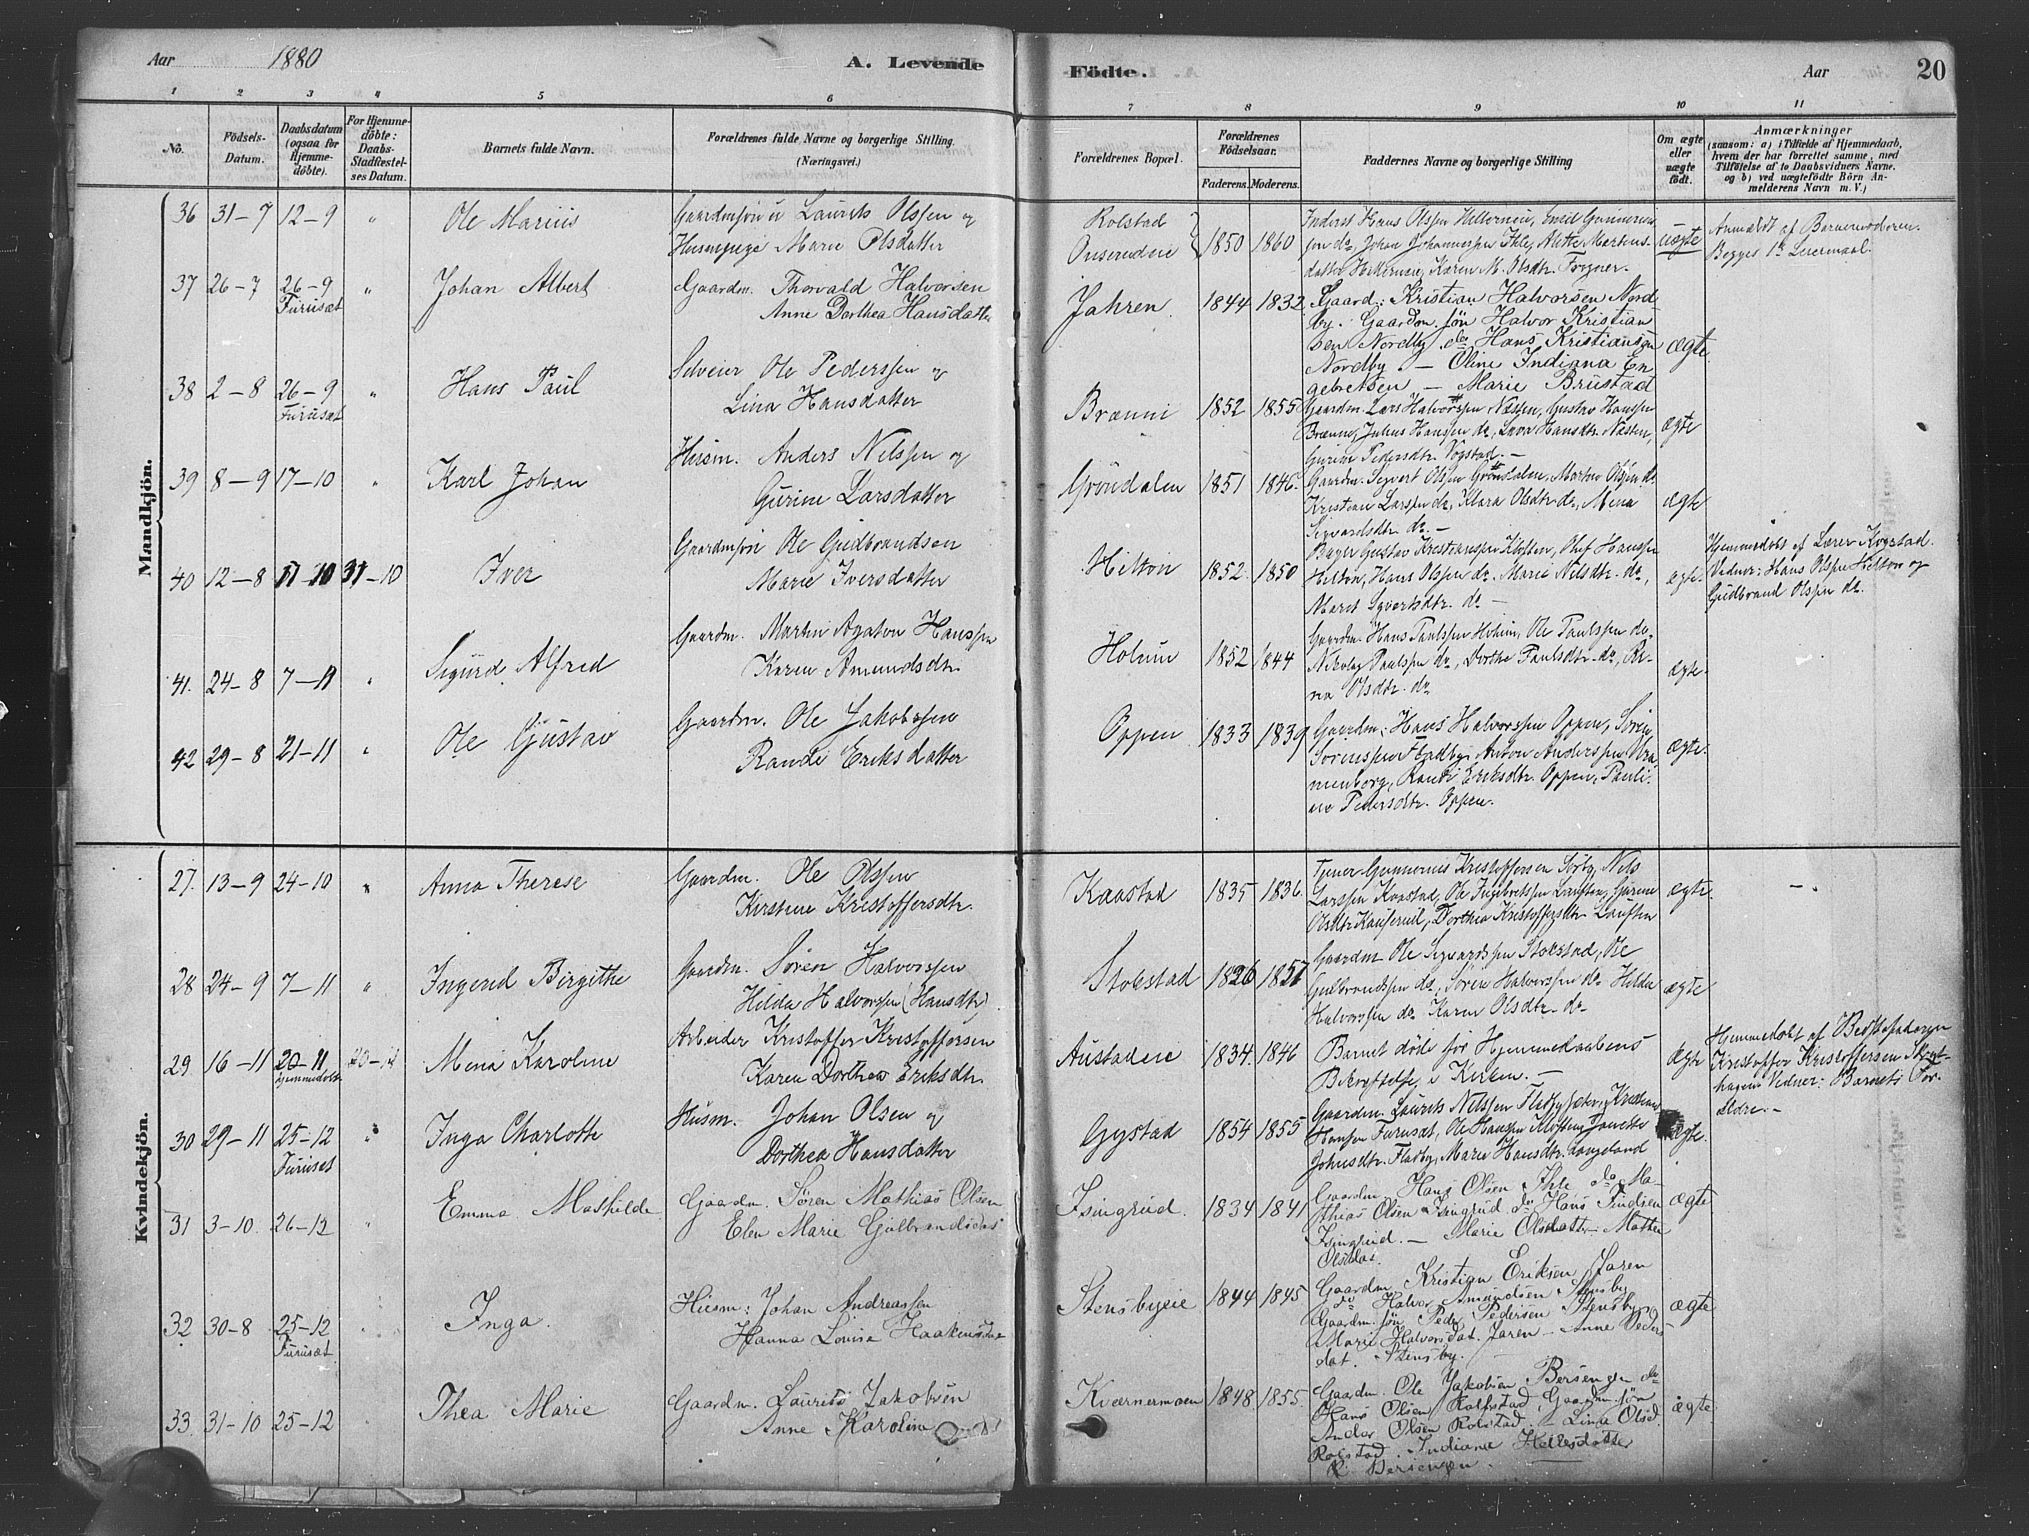 Aar 1880 A. Levende Födte. Aar 20
1 2 3 4 5 6 7 8 9 10 11
No.
Födsels-Datum.
Daabsdatum (ogsaa for Hjemme-döbte).
For Hjemme-döbte: Daabs-Stadfæstel-ses Datum.
Barnets fulde Navn.
Forældrenes fulde Navne og borgerlige Stilling.
(Næringsvei.)
Forældrenes Bopæl.
Forældrenes Födselsaar.
Faderens. Moderens.
Faddernes Navne og borgerlige Stilling
Om ægte eller uægte födt.
Anmærkninger
(saasom: a) i Tilfælde af Hjemmedaab,
hvem der har forrettet samme, med
Tilföielse af to Daabsvidners Navne,
og b) ved uægtefödte Börn An-
melderens Navn m. V.)
Mandkjön.
36 31-7 12-9 " Ole Marius
Laurits Olssen og
Marie Olsdatter
Rolstad
1850 1860
Inderst Hans Olssen
uægte
Anmældt af Barnemoderen.
Begges 1ste Leiermaal.
37 26-7 26-9 Furuset " Johan Albert
Gaardm. Thorvald Halvorsen
Anne Dorthea Hansdatter
Jahren. 1844 1832
Gaard: Kristian Halvorsen Nord-
by. Gaardm. søn Halvor Kristian
sen Nordby do Hans Kristiansen
Nordby — Oline Indiana En
gebretsen — Marie Brustad
ægte
38 2-8 26-9 Furuset " Hans Paul
Selveier Ole Pederssen og
Lina Hansdatter
Brænni 1852 1855
Gaardm. Lars Halvorssen Næssen, Gustav Hanssen
Brænne, Julius Hanssen do, Lava Hansdtr. Næsten,
Gurine Pedersdtr. Vogstad. —
ægte
39 8-9 17-10 " Karl Johan
Husm. Anders Nilssen og
Gurine Larsdatter
Gröndalen 1851 1846.
Gaardm. Syvert Olssen Gröndalen, Martin Olssen do.
Kristian Larssen do, Klara Olsdtr. do, Mena
Sigvardsdtr. do —
ægte
40 12-8 17-10 31-10 Iver
Gaardmsøn Ole Gudbrandsen
Marie Iversdatter
Hilton 1852. 1850
Gustav Kristianssen Kloften, Oluf Hanssen
Hilton, Hans Olssen do. Marie Nilsdtr. do,
Maret Syvertsdtr. do —
ægte.
Hjemmedøbt af Lærer Kogstad.
Vidner: Hans Olssen Hilton og
Gudbrand Olssen do.
41. 24-8 7-11 " Sigurd Alfred
Gaardm. Martin Agaton Hanssen
Karen Amundsdtr.
Holum 1852 1844
Gaardm. Hans Paulssen Holum, Ole Paulssen do.
Nikolay Paulssen do, Dorthe Paulsdtr. do, Re-
na Olsdtr. do
ægte.
42 29-8 21-11 " Ole Gustav
Gaardm. Ole Jakobssen
Randi Eriksdatter
Oppen 1833 1839
Gaardm: Hans Halvorssen Oppen, Søren
Sørenssen Fladby, Anton Anderssen Kra-
menborg, Randi Eriksdtr. Oppen, Pauli-
ne Pedersdtr. Oppen.
ægte.
Kvindekjön.
27. 13-9 24-10 " Anna Therese
Gaardm. Ole Olssen
Kirstine Kristoffersdtr.
Kaastad 1835 1836.
Tjener Gunnerius Kristoffersen Sørby, Nils
Larssen Kaastad, Ole Ingebretssen Laufsten, Gurine
Olsdtr. Kauserud, Dorthea Kristoffersdtr. Laufsten
ægte. — .
28 24-9 7-11 " Ingerid Birgithe
Gaardm. Søren Halvorssen
Hilda Halvorssen (Hansdtr.)
Stokstad 1826 1857
Gaardm Ole Sigvardssen Stokstad, Ole
Gulbrandssen do, Søren Halvorssen do Hilda
Halvorssen do Karen Olsdtr. do
ægte
29 16-11 20-11 Hjemmedøbt Mina Karoline
Arbeider Kristoffer Kristoffersen
Karen Dorthea Eriksdtr.
Austadeie 1834. 1846
Barnet døde før Hjemmedaabens
Bekræftelse i Kirken. —
ægte
Hjemmedøbt af Bedstefaderen
Kristoffer Kristoffersen
Vidner: Barnets For-
ældre. —
30 29-11 25-12 Furuset " Inga Charlotte
Husm. Johan Olsen og
Dorthea Hansdatter
Gystad 1854 1855
Gaardm. Laurits Nilssen Kristian
Hansen Furuset, Ole Hansen Kloften, Janette
Johnsdtr. Fladby, Marie Hansdtr. Langeland
ægte.
31 3-10. 26-12 " Emma Mathilde
Gaardm. Søren Mathias Olsen
Elen Marie Gulbrandsdat
Isingrud. 1834 1841
Gaardm. Hans Olsen Ihle do Ma-
thias Olsen Isingrud do Hans
Isingrud. — Marie Olsdatter — Mathea
Olsdat.
ægte
32 30-8 25-12 Furuset " Inga.
Husm: Johan Andreassen
Hanna Lovise Haakensdat
Stensbyeie 1844 1845
Gaardm. Kristian Eriksen Jaren
do Halvor Amundsen Stensby
Gaardm. søn Peder Pedersen Stensby
Marie Halvorsdat. Jaren — Anne Peders
dat. Stensby.
ægte
33. 31-10 25-12 " Thea Marie
Gaardm. Laurits Jakobsen
Anne Karoline
Kværnermoen 1848 1855.
Gaardm. Ole Jakobsen Bersengen do
Hans Olsen Rolstad, Gaardm. søn
Ander Olsen Rolstad. — Lina Olsd.
Rolstad. Indiana Hellesdatter
Bersengen.
ægte.